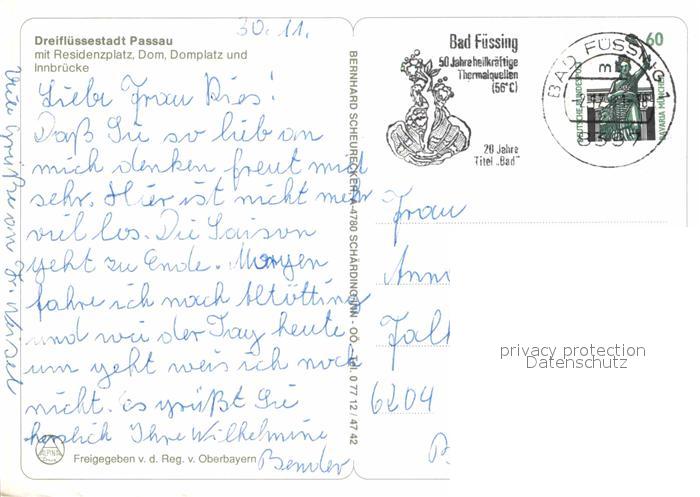 30.11.
Dreiflüssestadt Passau
mit Residenzplatz, Dom, Domplatz und
Innbrücke
Liebe Frau Ries!
Daß Sie so lieb an
mich denken freut mich
sehr. Hier ist nicht mehr
viel los. Die Saison
geht zu Ende. Morgen
fahre ich nach Altötting
und wie der Tag heute
um geht weis ich noch
nicht. Es grüßt Sie
herzlich Ihre Wilhelmine
Bender
Viele Grüße von Fr.
ALPINA
Freigegeben v. d. Reg. v. Oberbayern
BERNHARD SCHEURECKER, A-4780 SCHÄRDING/INN - OÖ., Tel. 0 77 12 / 47 42
Bad Füssing
50 Jahre heilkräftige
Thermalquellen
(56°C)
20 Jahre
Titel „Bad"
BAD FÜSSING 1
60
DEUTSCHE BUNDESPOST
BAVARIA MÜNCHEN
Frau
6204
privacy protection
Datenschutz